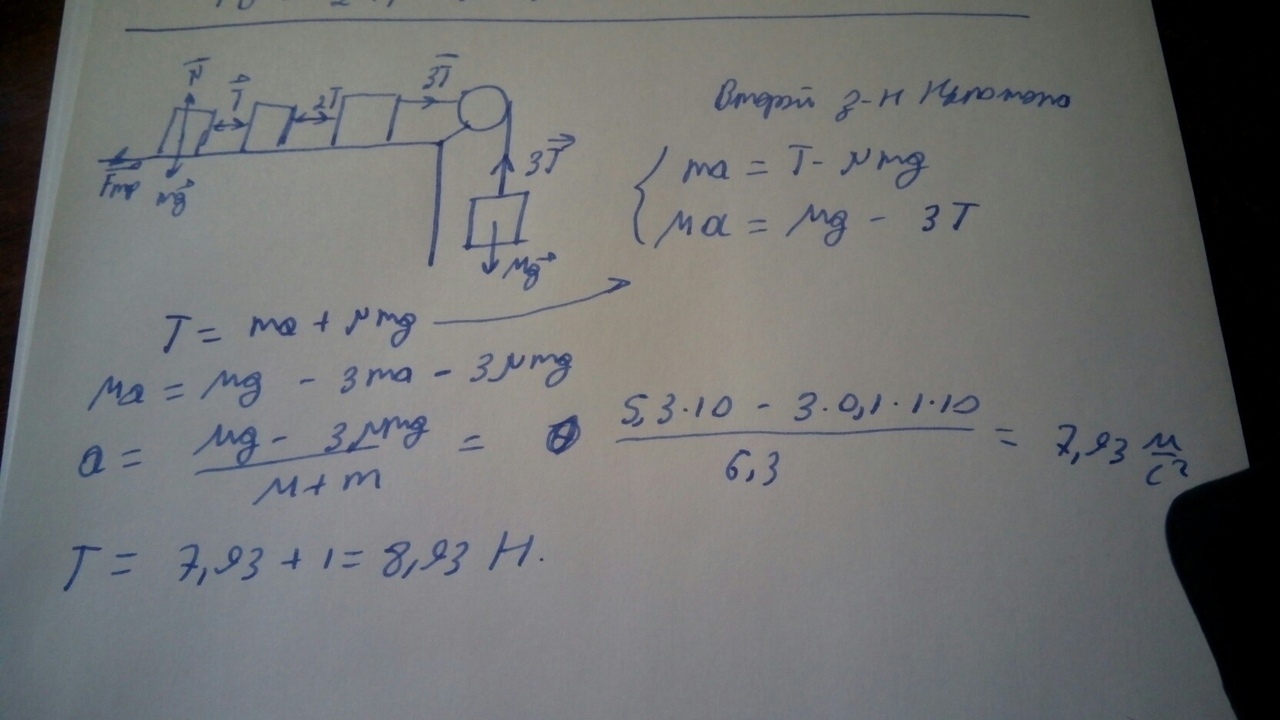 N T 2T 3T
Fтр mg 3T
Mg
Второй з-н Ньютона
ma = T - μmg
Ma = Mg - 3T
T = ma + μmg
Ma = Mg - 3ma - 3μmg
a = Mg - 3μmg / M + m = 5,3·10 - 3·0,1·1·10 / 6,3 = 7,93 м/с²
T = 7,93 + 1 = 8,93 Н.